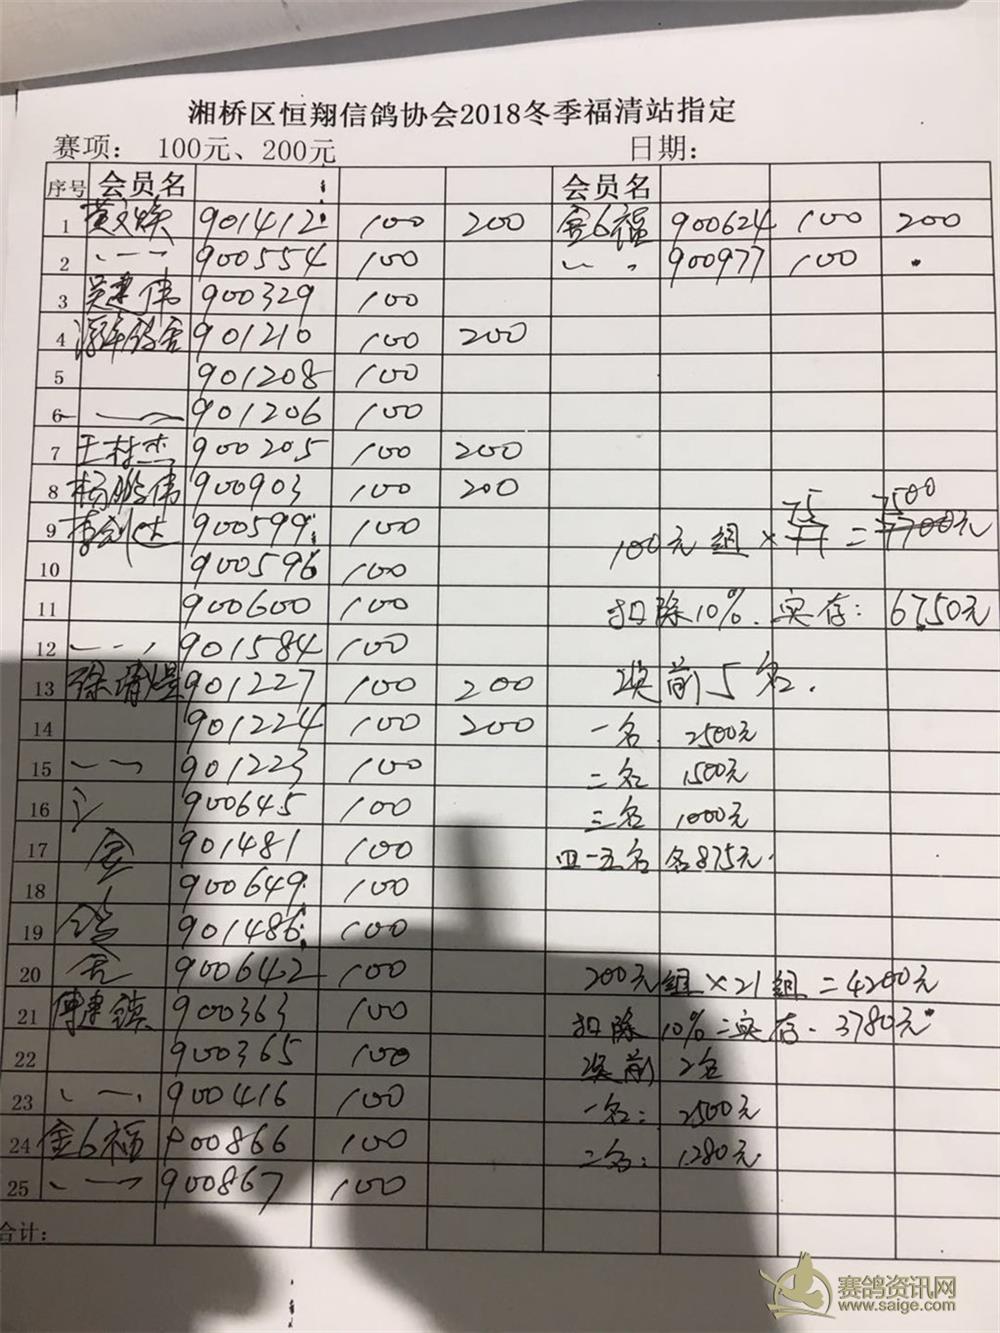 湘桥区恒翔信鸽协会2018冬季福清站指定
赛项： 100元、200元 日期：
序号 会员名 会员名
1 901412 100 200 金6福 900624 100 200
2 〃 900554 100 〃 900977 100
3 吴建伟 900329 100
4 901210 100 200
5 901208 100
6 〃 901206 100
7 王村杰 900205 100 200
8 杨鹏伟 900903 100 200
9 李剑达 900599 100
10 900596 100
11 900600 100
12 〃 901584 100
13 901227 100 200
14 901224 100 200
15 〃 901223 100
16 900645 100
17 901481 100
18 900649 100
19 901486 100
20 900642 100
21 傅建镇 900363 100
22 900365 100
23 〃 900416 100
24 金6福 900866 100
25 〃 900867 100
合计：
75 7500
100元组×77=7700元
扣除10%.实存：6750元
奖前5名.
一名 2500元
二名 1500元
三名 1000元
四一五名 各875元.
200元组×21组=4200元
扣除10%=实存.3780元
奖前2名
一名：2500元
二名：1280元
赛鸽资讯网
www.saige.com